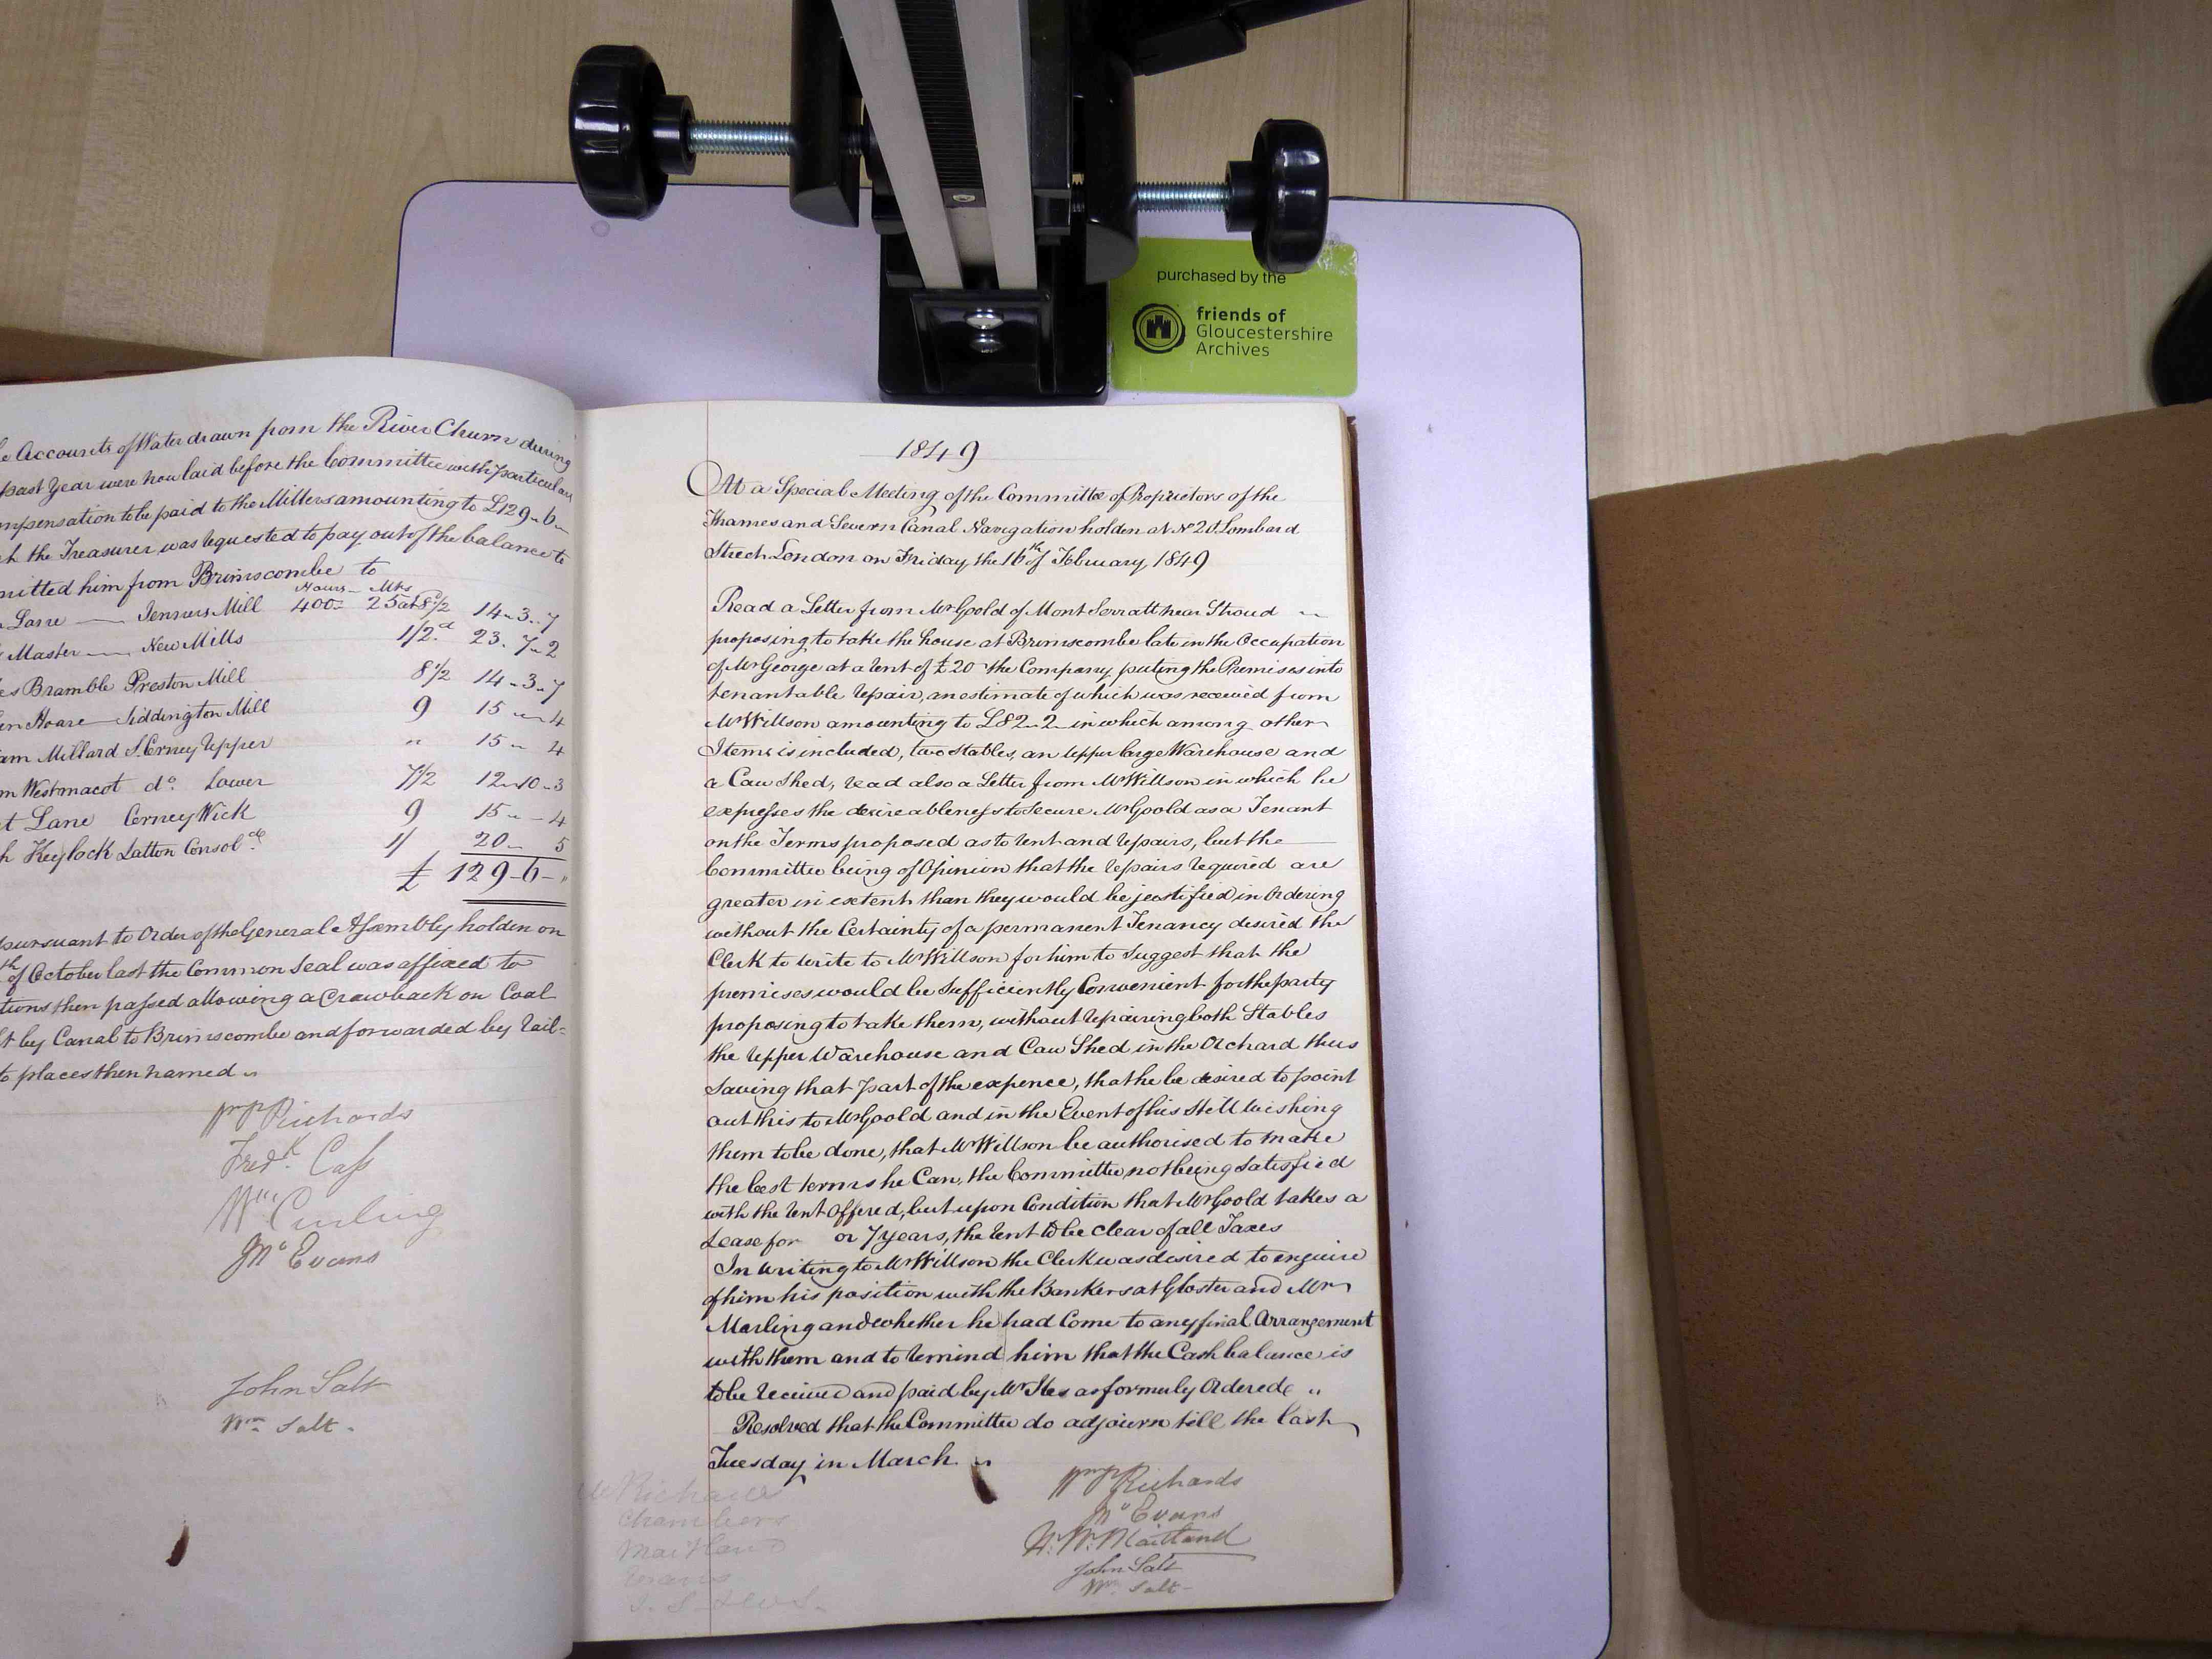 purchased by the
friends of
Gloucestershire
Archives
Accounts of Water drawn from the River Churn during
past Year were now laid before the Committee with particulars
mpensation to be paid to the Millers amounting to £129..6..
h the Treasurer was requested to pay out of the balance to
mitted him from Brimscombe to
Hours — Mts
Lane — Jenners Mill 400- 25 at 8½ 14..3..7
Master — New Mills 1/2.d 23. 7..2
es Bramble Preston Mill 8½ 14..3..7
en Hoare — Siddington Mill 9 15 .. 4
am Millard S. Cerney Upper " 15 .. 4
m Westmacot do. Lower 7½ 12..10..3
t Lane Cerney Wick 9 15 .. - 4
h Keylock Latton Consol.de 1/ 20.. 5
£ 129-6-"
pursuant to Order of the General Assembly holden on
th of October last the Common Seal was affixed to
tions then passed allowing a Drawback on Coal
t by Canal to Brimscombe and forwarded by Rail=
to places then named
Wm P Richards
Fredk. Cass
Wm Curling
Jno Evans
John Salt
Wm Salt -
1849
At a Special Meeting of the Committee of Proprietors of the
Thames and Severn Canal Navigation holden at No 20 Lombard
Street London on Friday the 16th of February, 1849
Read a Letter from Mr Goold of Mont Serratt near Stroud
proposing to take the house at Brimscombe late in the Occupation
of Mr George at a rent of £20 the Company puting the Premises into
tenantable repair, an estimate of which was received from
Mr Willson amounting to £82..2.. in which among other
Items is included, two Stables, an upper large Warehouse and
a Cow Shed, read also a Letter from Mr Willson in which he
expresses the desireableness to Secure Mr Goold as a Tenant
on the Terms proposed as to rent and repairs, but the
Committee being of Opinion that the repairs required are
greater in extent than they would be justified in Ordering
without the Certainty of a permanent Tenancy desired the
Clerk to write to Mr Willson for him to Suggest that the
premises would be Sufficiently Convenient for the party
proposing to take them, without repairing both Stables
the Upper Warehouse and Cow Shed in the Orchard thus
Saving that part of the expence, that he be desired to point
out this to Mr Goold and in the Event of his still wishing
them to be done, that Mr Willson be authorised to make
the best terms he Can, the Committee not being Satisfied
with the rent Offered, but upon Condition that Mr Goold takes a
Lease for or 7 years, the rent to be clear of all Taxes
In writing to Mr Willson the Clerk was desired to enquire
of him his position with the Bankers at Gloster and Mr
Marling and whether he had Come to any final Arrangement
with them and to remind him that the Cash balance is
to be received and paid by Mr Iles as formerly Ordered "
Resolved that the Committee do adjourn till the last
Tuesday in March
Wm P Richards
Jno Evans
John Salt
Wm Salt -
W. Maitland
Richards
Chambers
Maitland
Evans